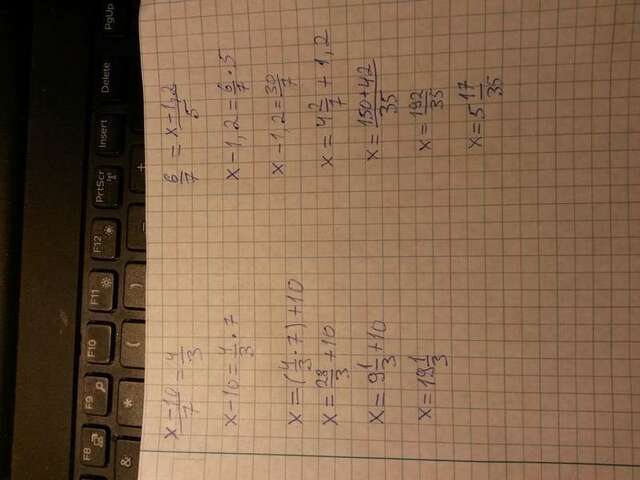 F8 F9 F10 F11 F12 PrtScr Insert Delete PgUp
& * ( ) _ +
(x-10)/7 = 4/3
x-10 = 4/3 · 7
x = (4/3 · 7) + 10
x = 28/3 + 10
x = 9 1/3 + 10
x = 19 1/3
6/7 = (x-1,2)/5
x-1,2 = 6/7 · 5
x-1,2 = 30/7
x = 4 2/7 + 1,2
x = (150+42)/35
x = 192/35
x = 5 17/35